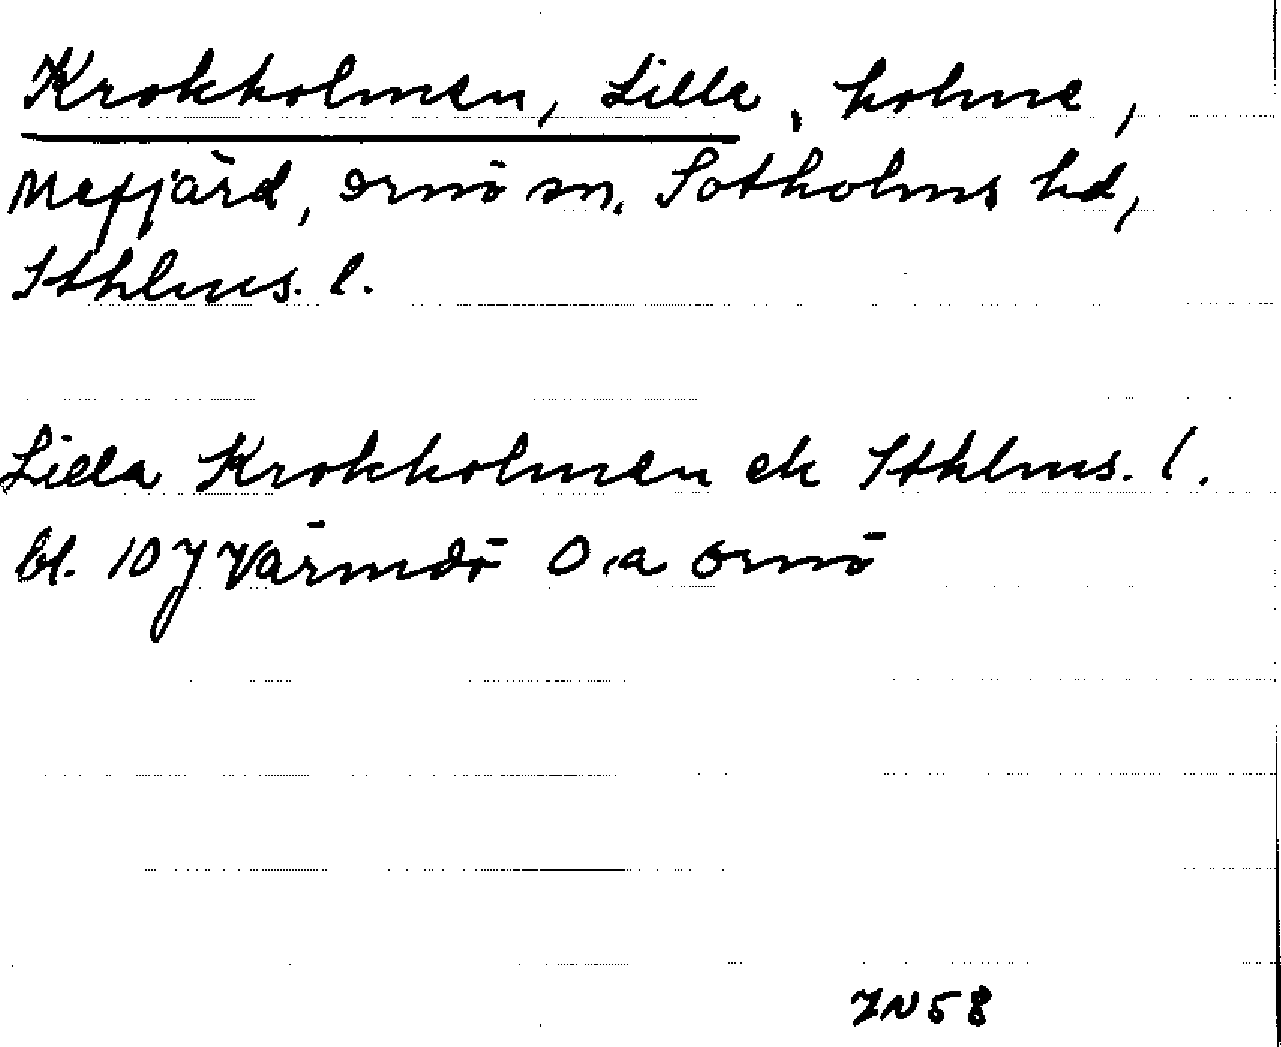 Krokholmen, Lilla, holme,
Mefjärd, Ornö sn. Sotholms hd,
Sthlms. l.
Lilla Krokholmen ek Sthlms. l.
bl. 107 Värmdö O.a Ornö
ZN58